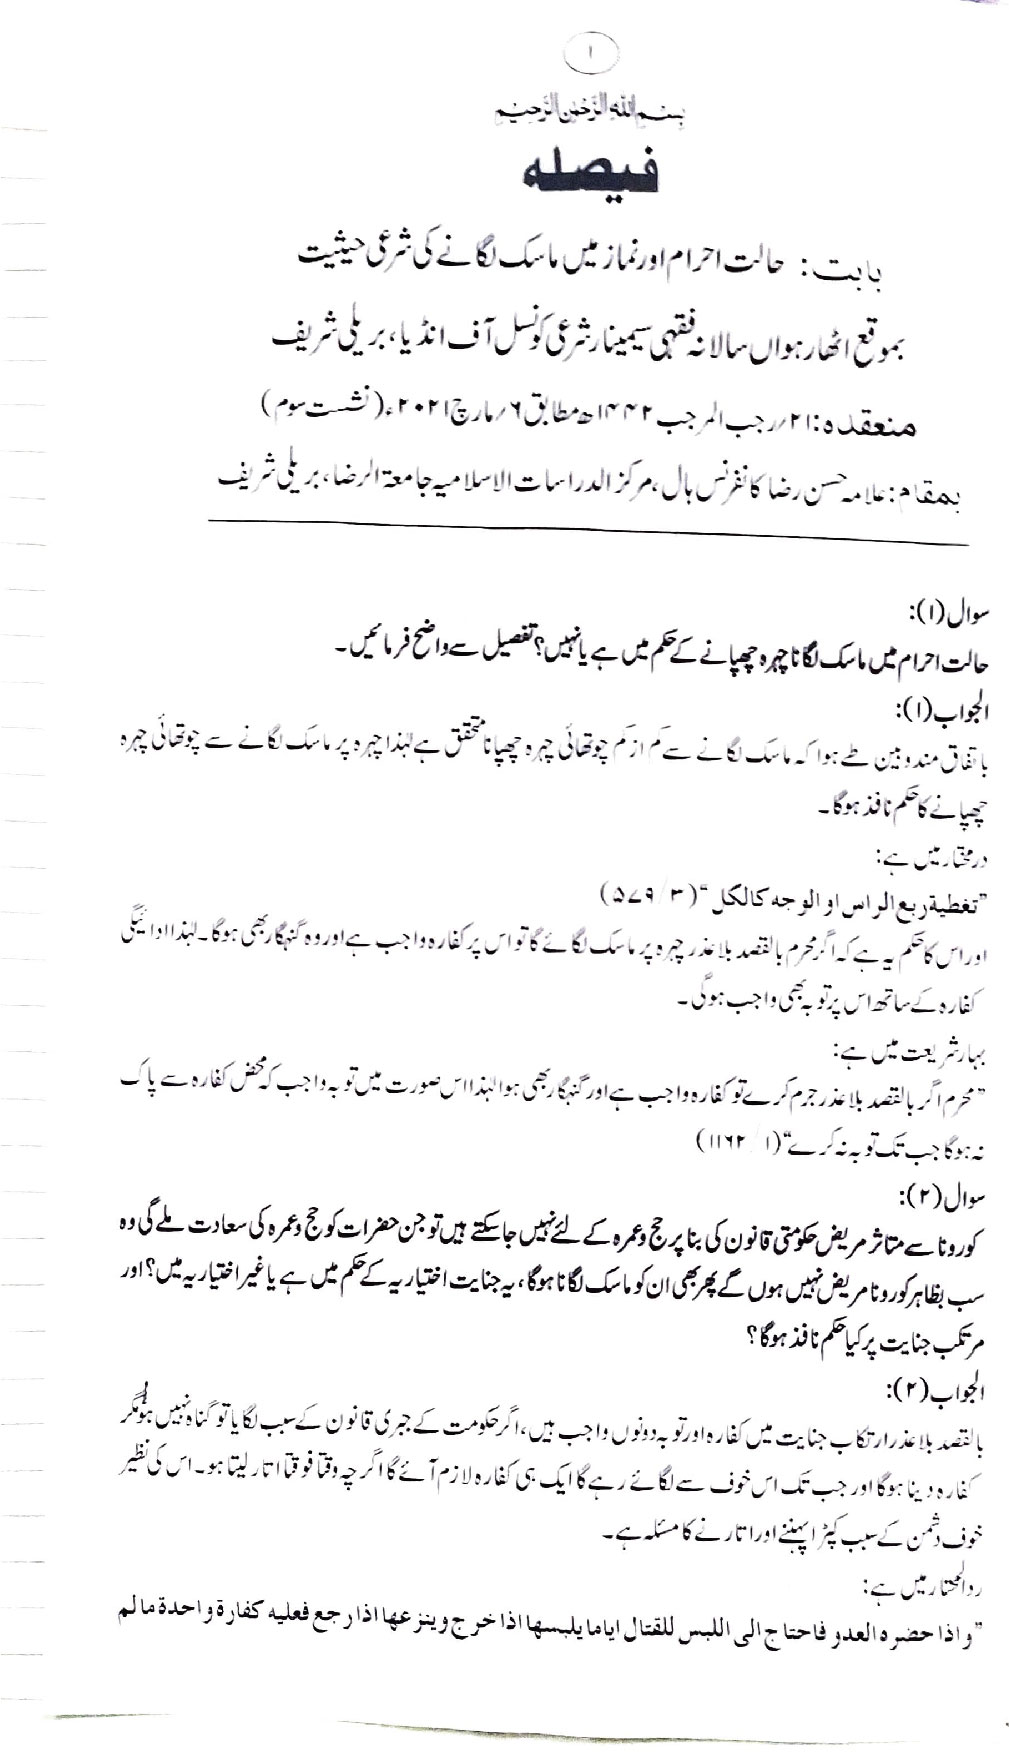 ۱
بسم اللہ الرحمن الرحیم
فیصلہ
بابت: حالت احرام اور نماز میں ماسک لگانے کی شرعی حیثیت
بموقع اٹھارہواں سالانہ فقہی سیمینار شرعی کونسل آف انڈیا، بریلی شریف
منعقدہ: ۲۱/رجب المرجب ۱۴۴۲ھ مطابق ۶/مارچ ۲۰۲۱ء (نشست سوم)
بمقام: علامہ حسن رضا کانفرنس ہال، مرکز الدراسات الاسلامیہ جامعۃ الرضا، بریلی شریف
سوال (۱):
حالت احرام میں ماسک لگانا چہرہ چھپانے کے حکم میں ہے یا نہیں؟ تفصیل سے واضح فرمائیں۔
الجواب (۱):
باتفاق مندوبین طے ہوا کہ ماسک لگانے سے کم از کم چوتھائی چہرہ چھپانا متحقق ہے لہٰذا چہرہ پر ماسک لگانے سے چوتھائی چہرہ
چھپانے کا حکم نافذ ہوگا۔
درمختار میں ہے:
"تغطیۃ ربع الراس او الوجہ کالکل" (۳/ ۵۷۹)
اور اس کا حکم یہ ہے کہ اگر محرم بالقصد بلا عذر چہرہ پر ماسک لگائے گا تو اس پر کفارہ واجب ہے اور وہ گنہگار بھی ہوگا۔ لہٰذا ادائیگی
کفارہ کے ساتھ اس پر توبہ بھی واجب ہوگی۔
بہار شریعت میں ہے:
"محرم اگر بالقصد بلا عذر جرم کرے تو کفارہ واجب ہے اور گنہگار بھی ہوا لہٰذا اس صورت میں توبہ واجب کہ محض کفارہ سے پاک
نہ ہوگا جب تک توبہ نہ کرے" (۱/ ۱۱۶۲)
سوال (۲):
کورونا سے متاثر مریض حکومتی قانون کی بنا پر حج و عمرہ کے لئے نہیں جا سکتے ہیں تو جن حضرات کو حج و عمرہ کی سعادت ملے گی وہ
سب بظاہر کورونا مریض نہیں ہوں گے پھر بھی ان کو ماسک لگانا ہوگا، یہ جنایت اختیاریہ کے حکم میں ہے یا غیر اختیاریہ میں؟ اور
مرتکب جنایت پر کیا حکم نافذ ہوگا؟
الجواب (۲):
بالقصد بلا عذر ارتکاب جنایت میں کفارہ اور توبہ دونوں واجب ہیں، اگر حکومت کے جبری قانون کے سبب لگایا تو گناہ نہیں ہوگا مگر
کفارہ دینا ہوگا اور جب تک اس خوف سے لگائے رہے گا ایک ہی کفارہ لازم آئے گا اگرچہ وقتا فوقتا اتار لیتا ہو۔ اس کی نظیر
خوف دشمن کے سبب کپڑا پہننے اور اتارنے کا مسئلہ ہے۔
ردالمحتار میں ہے:
"واذا حضرہ العدو فاحتاج الی اللبس للقتال ایاما یلبسها اذا خرج وینزعها اذا رجع فعلیہ کفارۃ واحدۃ مالم